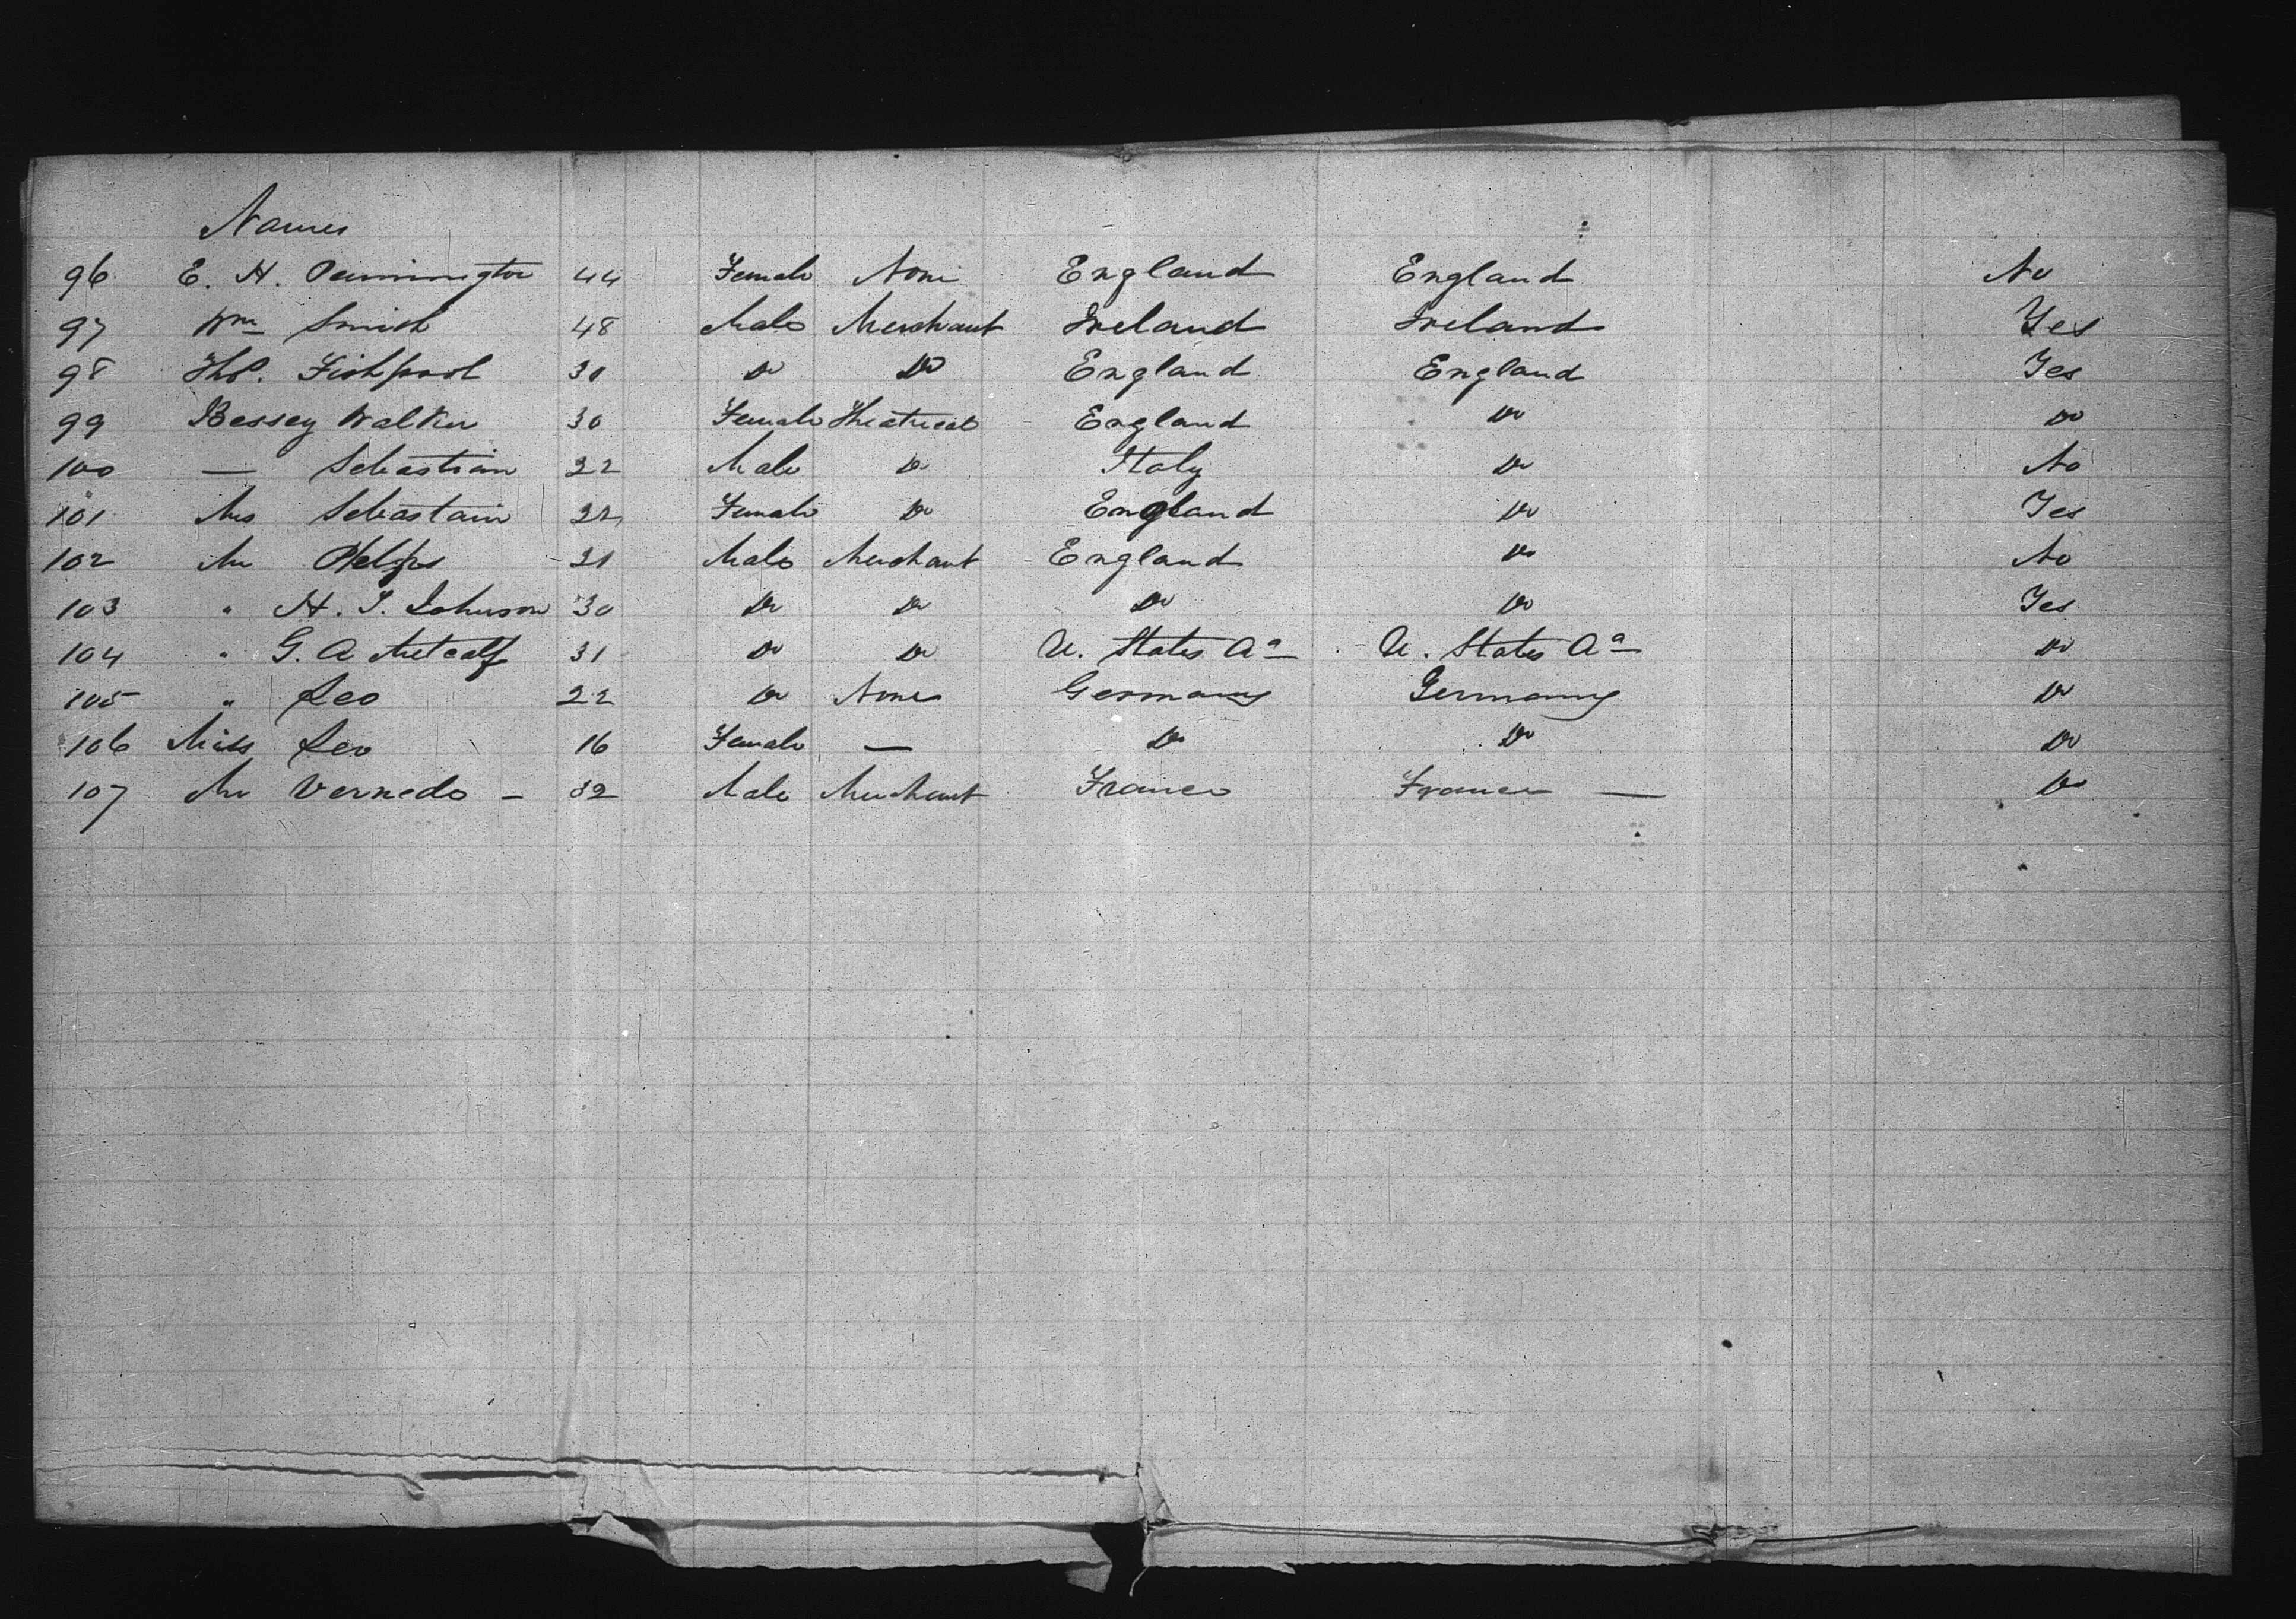 Names
96 E. H. Pennington 44 Female None England England No
97 Wm Smith 48 Male Merchant Ireland Ireland Yes
98 Thos. Fishpool 30 Do Do England England Yes
99 Bessey Walker 30 Female Theatrical England Do Do
100 — Sebastian 22 Male Do Italy Do No
101 Mrs Sebastain 22 Female Do England Do Yes
102 Mr Phelps 21 Male Merchant England Do No
103 " H. S. Johnson 30 Do Do Do Do Yes
104 " G. A Metcalf 31 Do Do U. States Aa U. States Aa Do
105 " Leo 22 Do None Germany Germany Do
106 Miss Leo 16 Female — Do Do Do
107 Mr Vernedo — 32 Male Merchant France France — Do